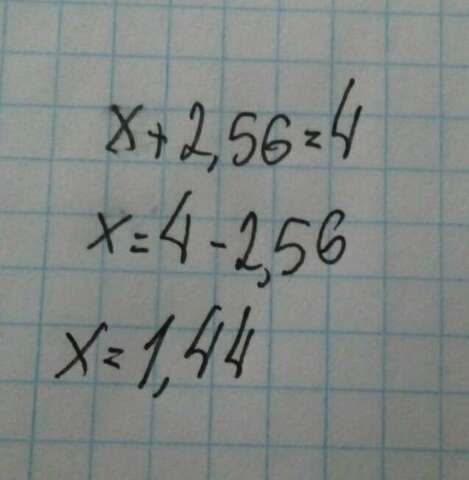 x+2,56=4
x=4-2,56
x=1,44